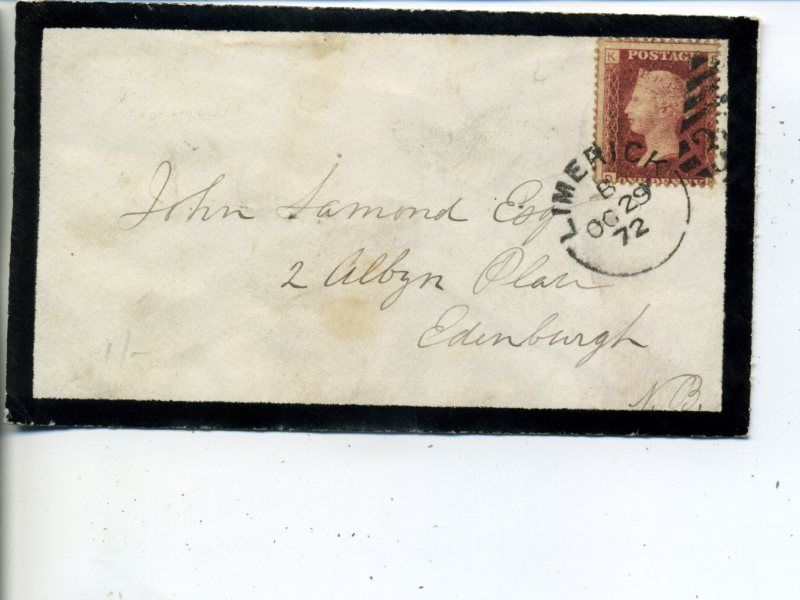 K
POSTAGE
LIMERICK
B
OC 29
72
ONE PENNY
John Lamond Esq
2 Albyn Place
Edinburgh
N.B.
1/-